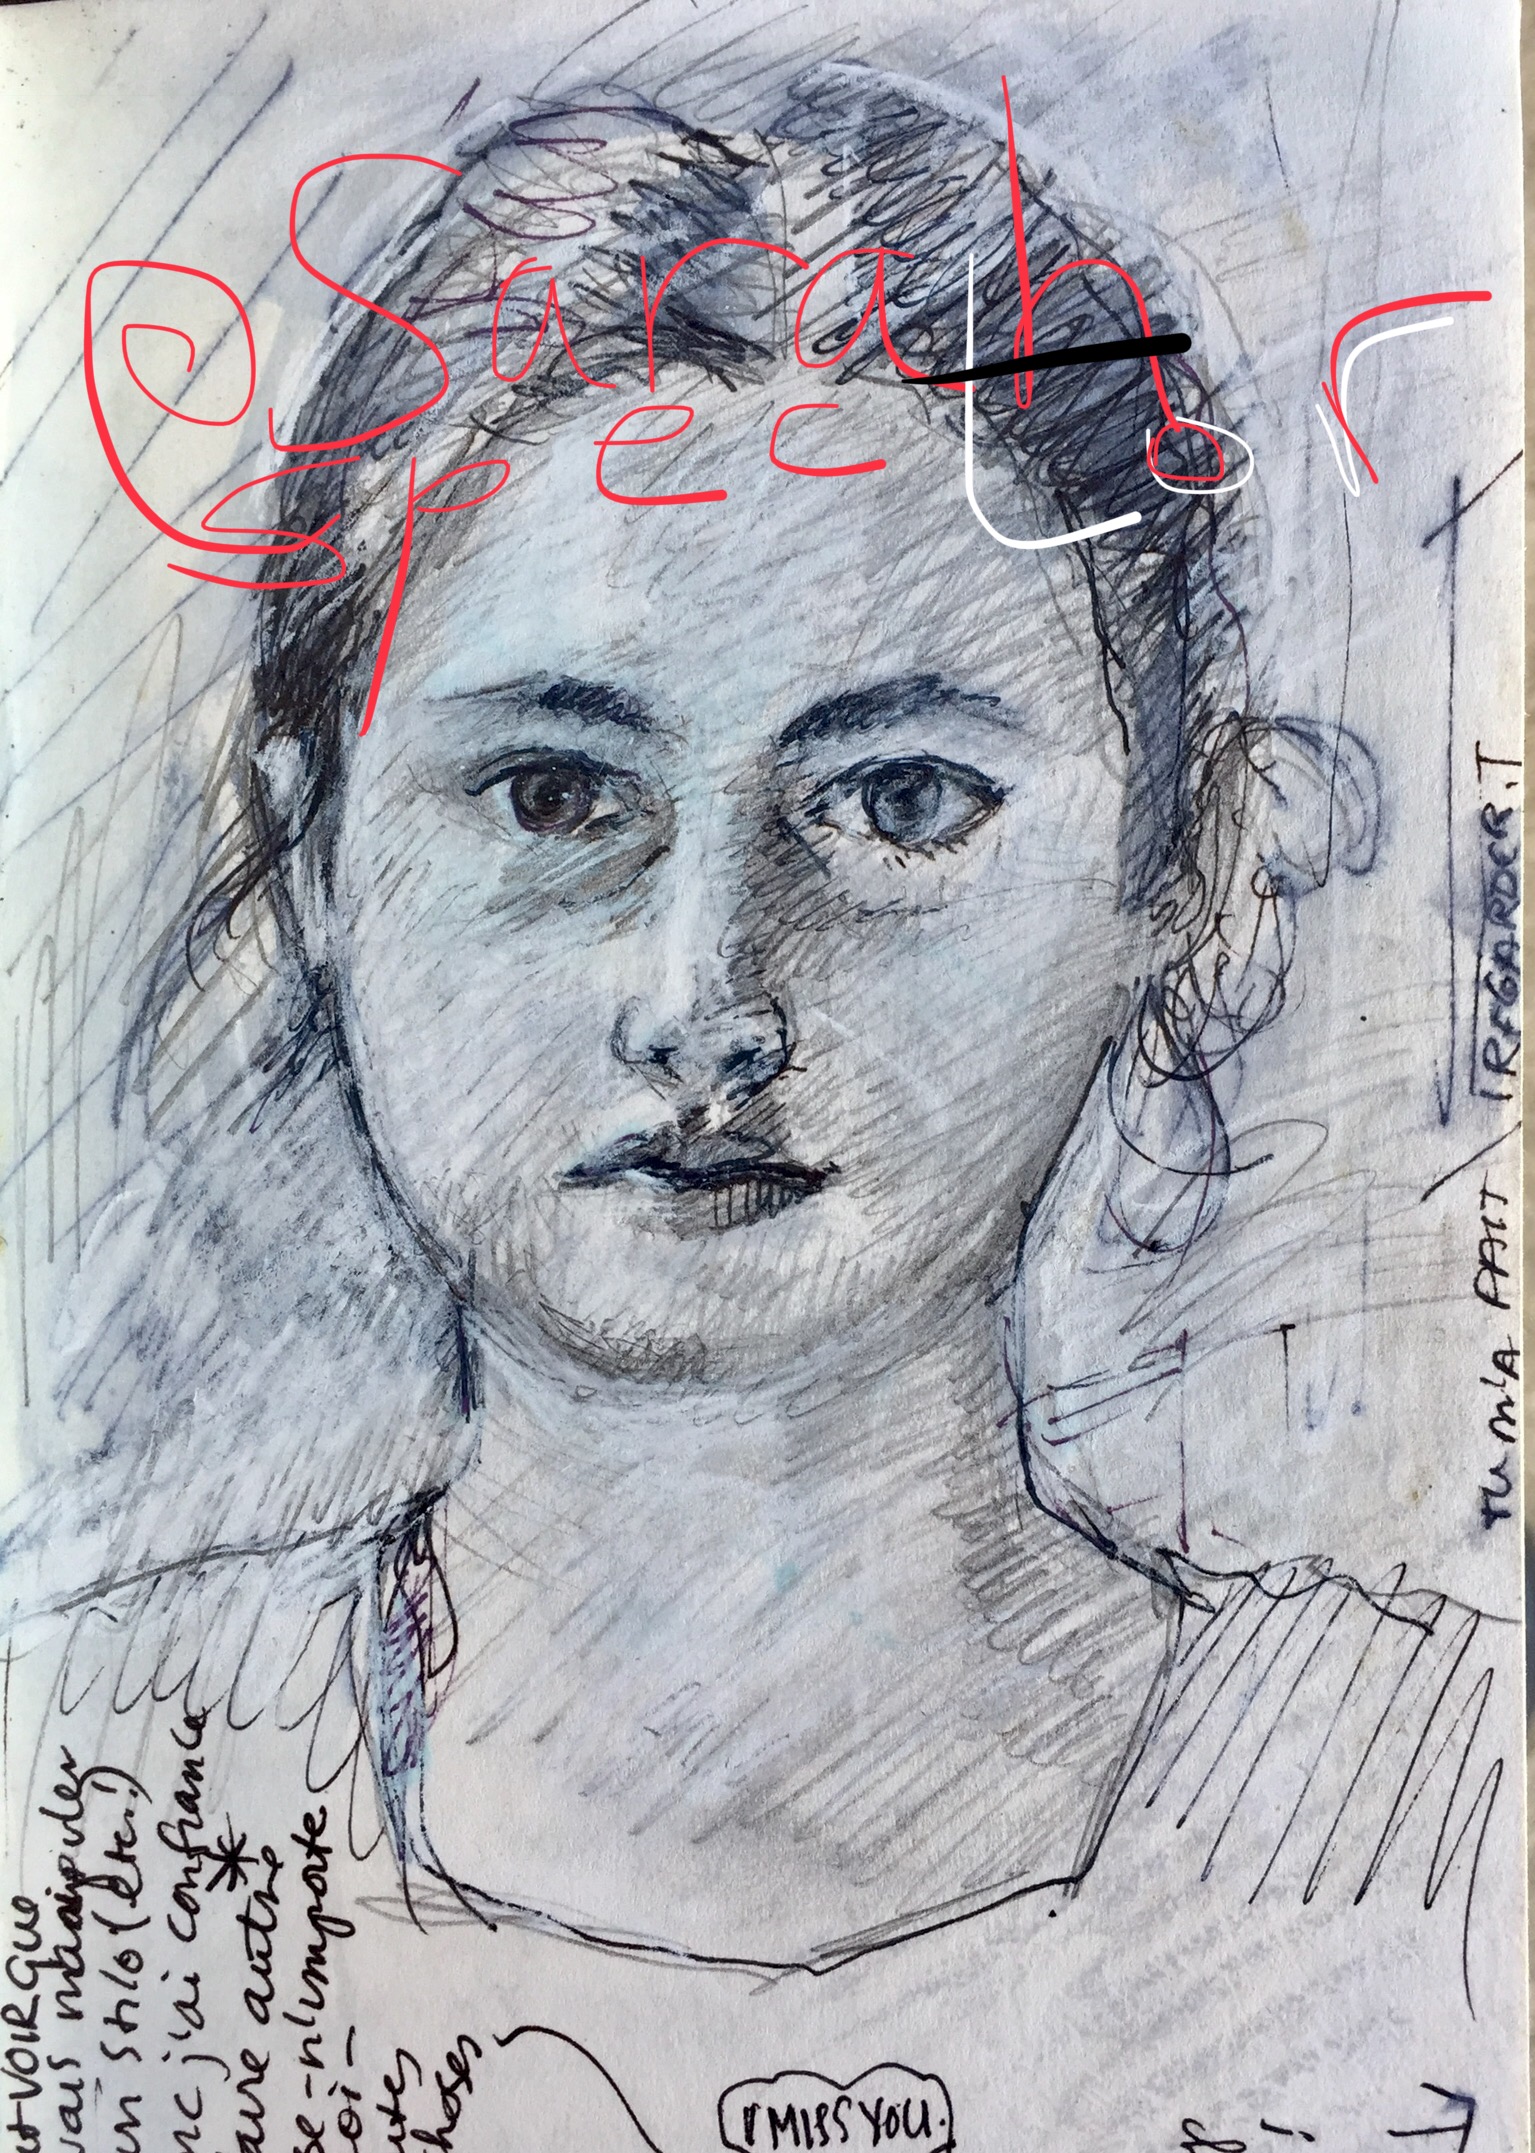 @Sarah
Spector
TU M'A FAIT REGARDER.T
VOIR QUE
vais manipuler
un stilo (etc!)
nc j'ai confiance
autre
se - n'importe
oi -
choses
"I MISS YOU.